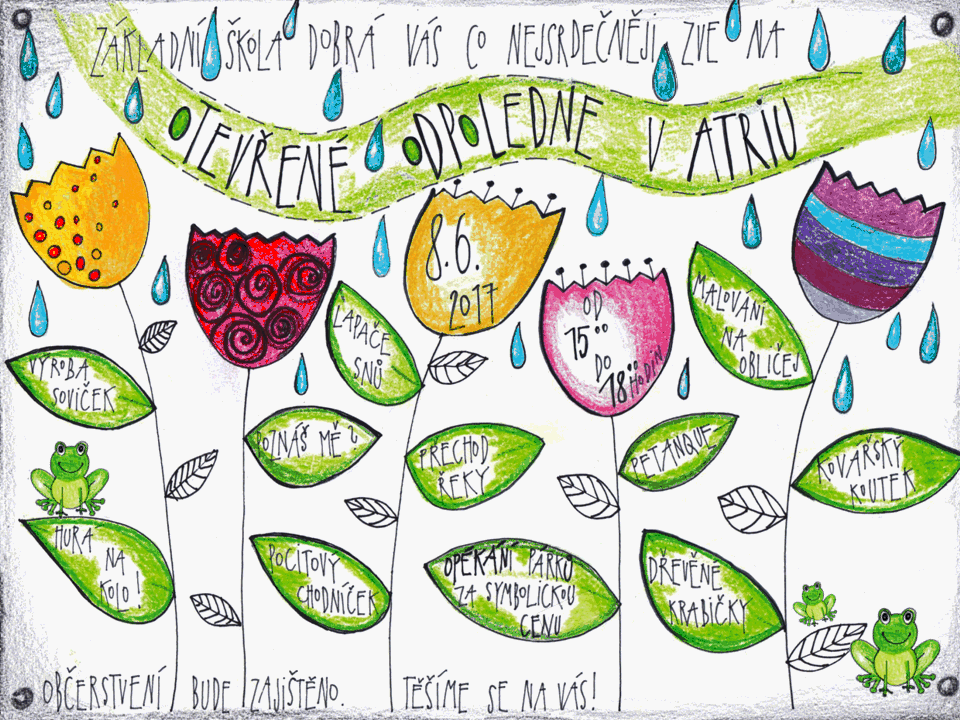 ZÁKLADNÍ ŠKOLA DOBRÁ VÁS CO NEJSRDEČNĚJI ZVE NA
OTEVŘENÉ ODPOLEDNE V ATRIU
8.6.
2017
OD
15⁰⁰
DO
18⁰⁰ HODIN
LAPAČE
SNŮ
MALOVÁNÍ
NA
OBLIČEJ
VÝROBA
SOVIČEK
POZNÁŠ MĚ?
PŘECHOD
ŘEKY
PETANQUE
KOVÁŘSKÝ
KOUTEK
HURÁ
NA
KOLO!
POCITOVÝ
CHODNÍČEK
OPÉKÁNÍ PÁRKŮ
ZA SYMBOLICKOU
CENU
DŘEVĚNÉ
KRABIČKY
OBČERSTVENÍ BUDE ZAJIŠTĚNO. TĚŠÍME SE NA VÁS!